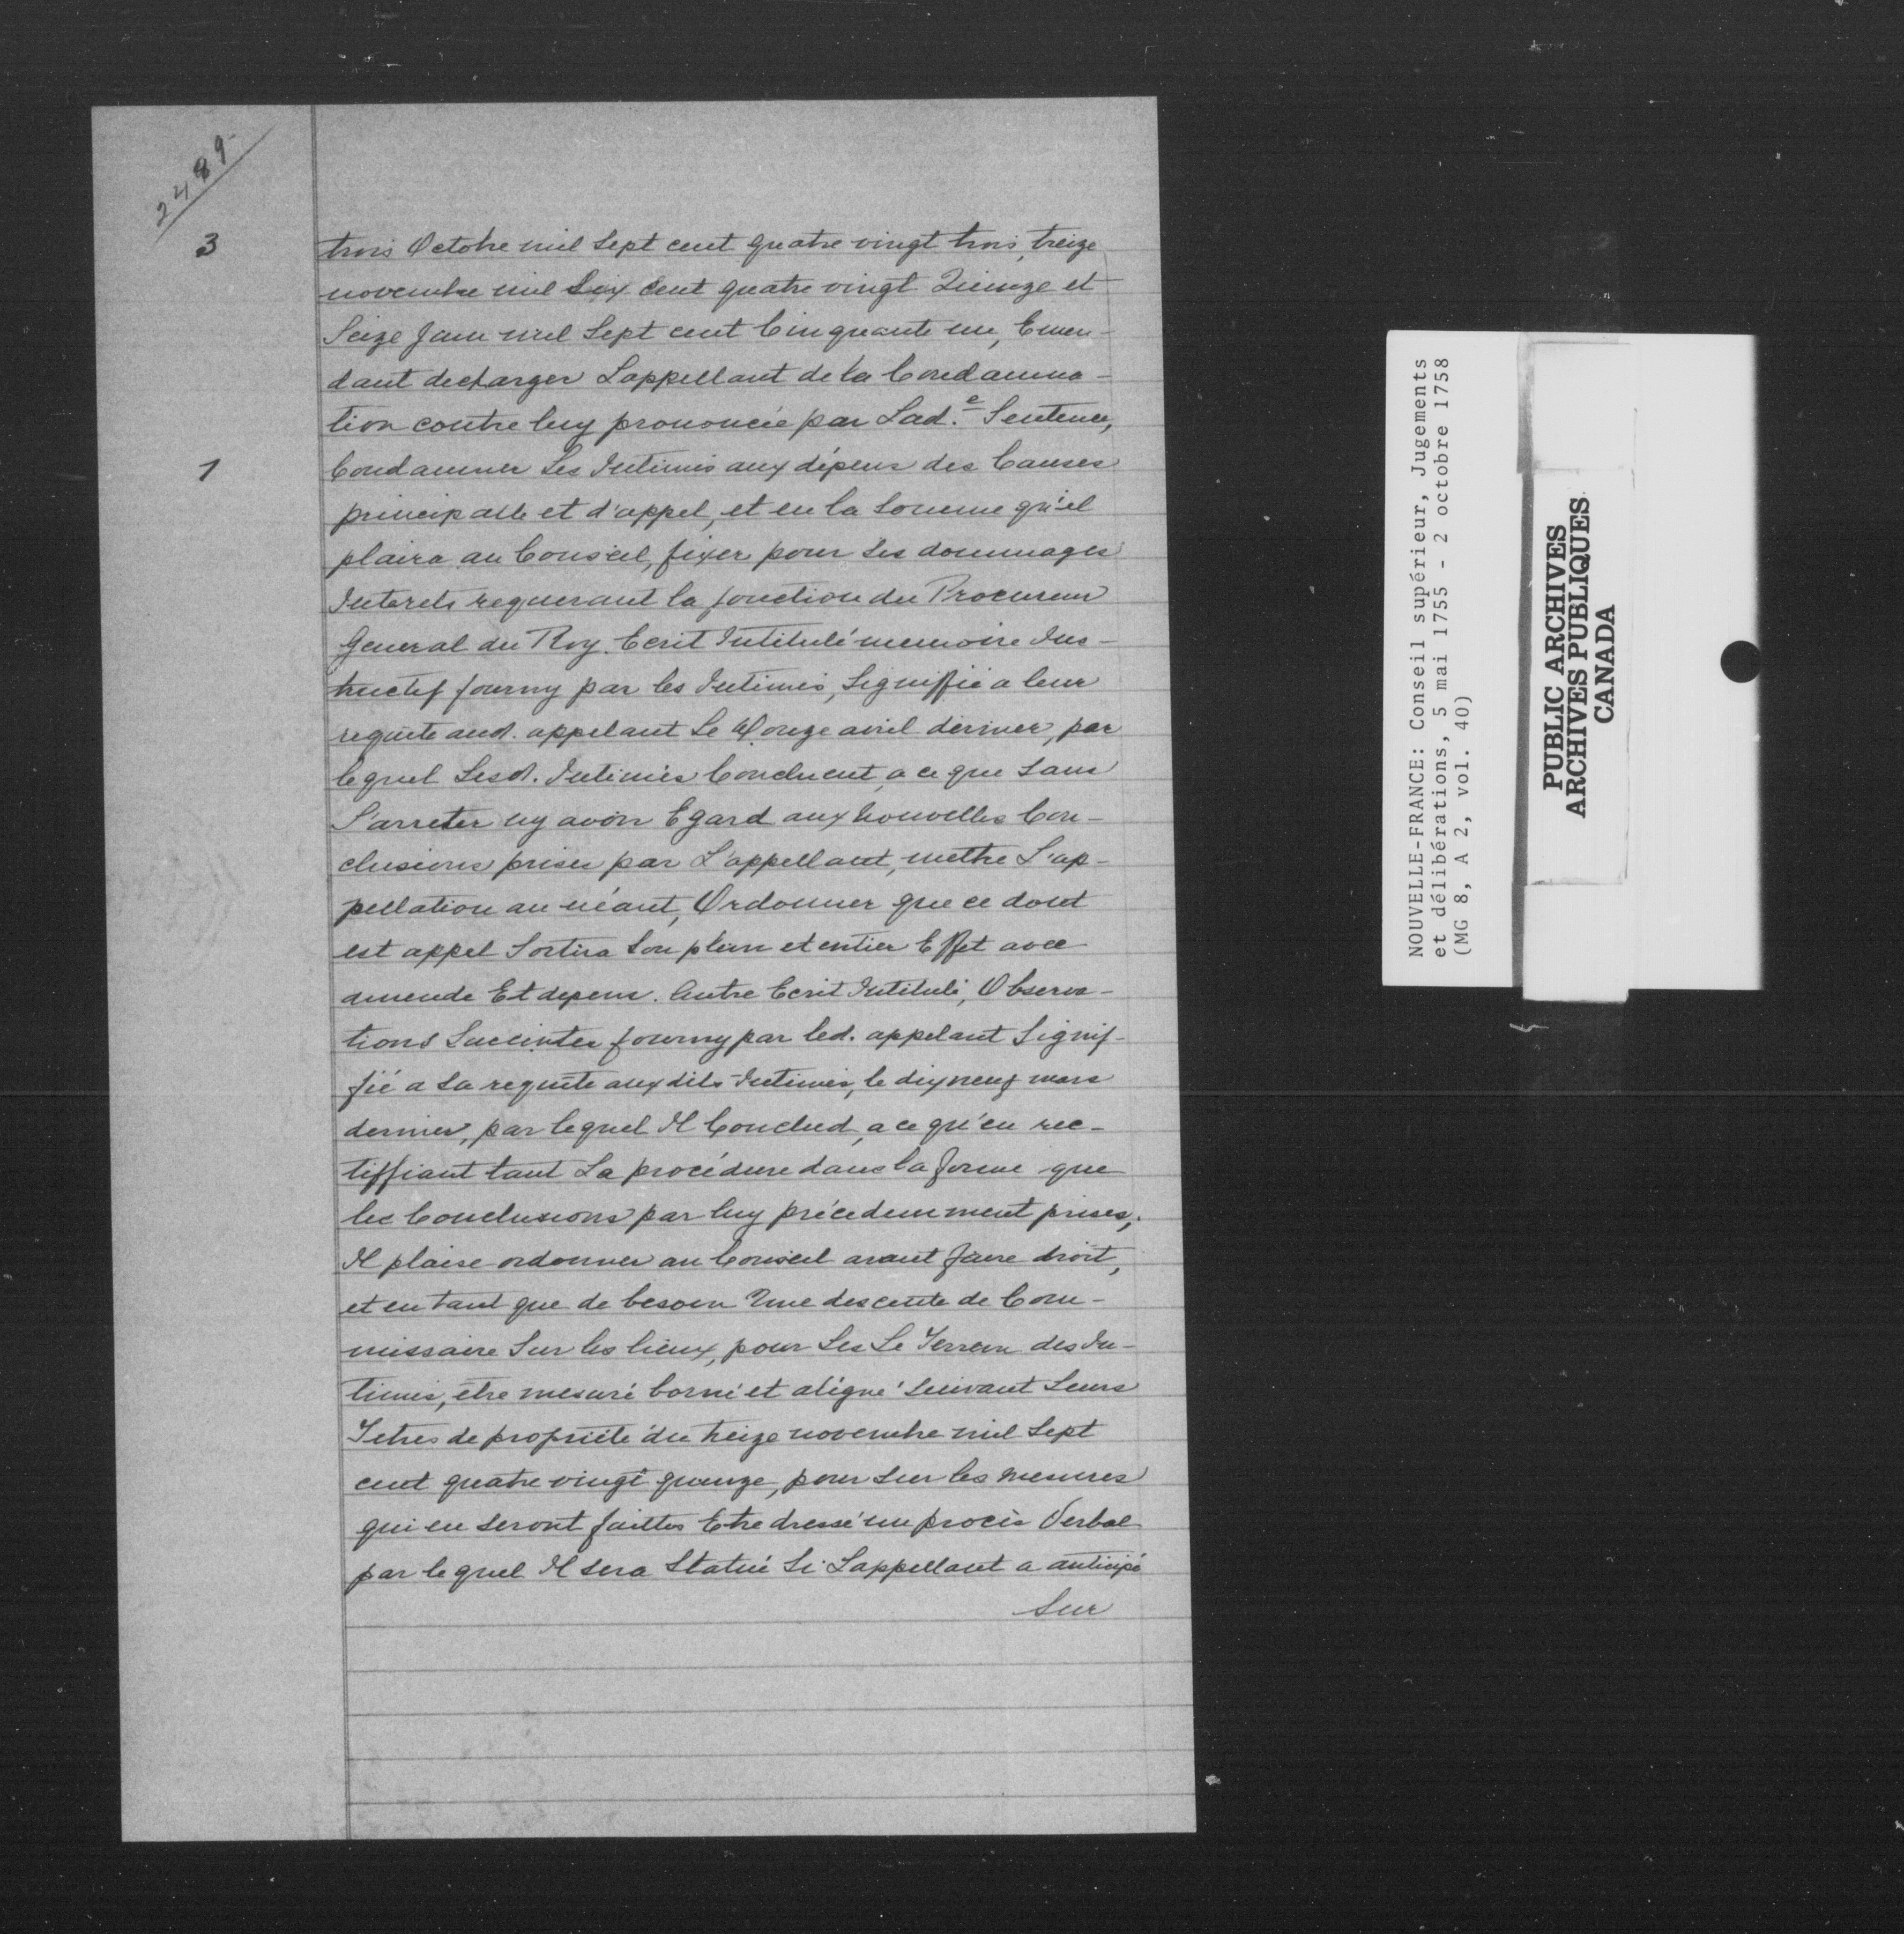 2489-
3
trois Octobre mil Sept cent quatre vingt trois, treize
novembre mil Six Cent quatre vingt Quinze et
Seize Juin mil Sept cent Cinquante un, Emen-
dant decharger Lappellant de la Condamna-
tion contre luy prononcée par Lad.e Sentence,
1
Condamner Les Intimés aux dépens des Causes
principalle et d'appel, et en la Somme qu'il
plaira au Conseil, fixer pour Ses dommages
Interets requerant la fonction du Procureur
General du Roy. Ecrit Intitulé memoire Ins-
tructif fourny par les Intimés, Signiffié a leur
requête aud. appelant Le Onze avril dernier, par
lequel Lesd. Intimés Concluent, a ce que Sans
S'arreter ny avoir Egard aux Nouvelles Con-
clusions prises par L'appellant, mettre L'ap-
pellation au néant, Ordonner que ce dont
est appel Sortira Son plein et entier Effet avec
amende Et depens. Autre Ecrit Intitulé, Observa-
tions Succintes fourny par led. appelant Signif-
fié a Sa requête aux dits Intimés, le dix neuf mars
dernier, par lequel Il Conclud, a ce qu'en rec-
tiffiant tant La procédure dans la forme que
les Conclusions par luy précedemment prises,
Il plaise ordonner au Conseil avant faire droit,
et en tant que de besoin Une descente de Com-
missaire Sur les lieux, pour Les Le Terrein des In-
timés, être mesuré borné et aligné Suivant Leurs
Titres de propriété du treize novembre mil Sept
cent quatre vingt quinze, pour Sur les Mesures
qui en Seront faittes Etre dressé un procès Verbal
par lequel Il Sera Statué Si Lappellant a anticipé
Sur
NOUVELLE-FRANCE: Conseil supérieur, Jugements
et délibérations, 5 mai 1755 - 2 octobre 1758
(MG 8, A 2, vol. 40)
PUBLIC ARCHIVES
ARCHIVES PUBLIQUES
CANADA